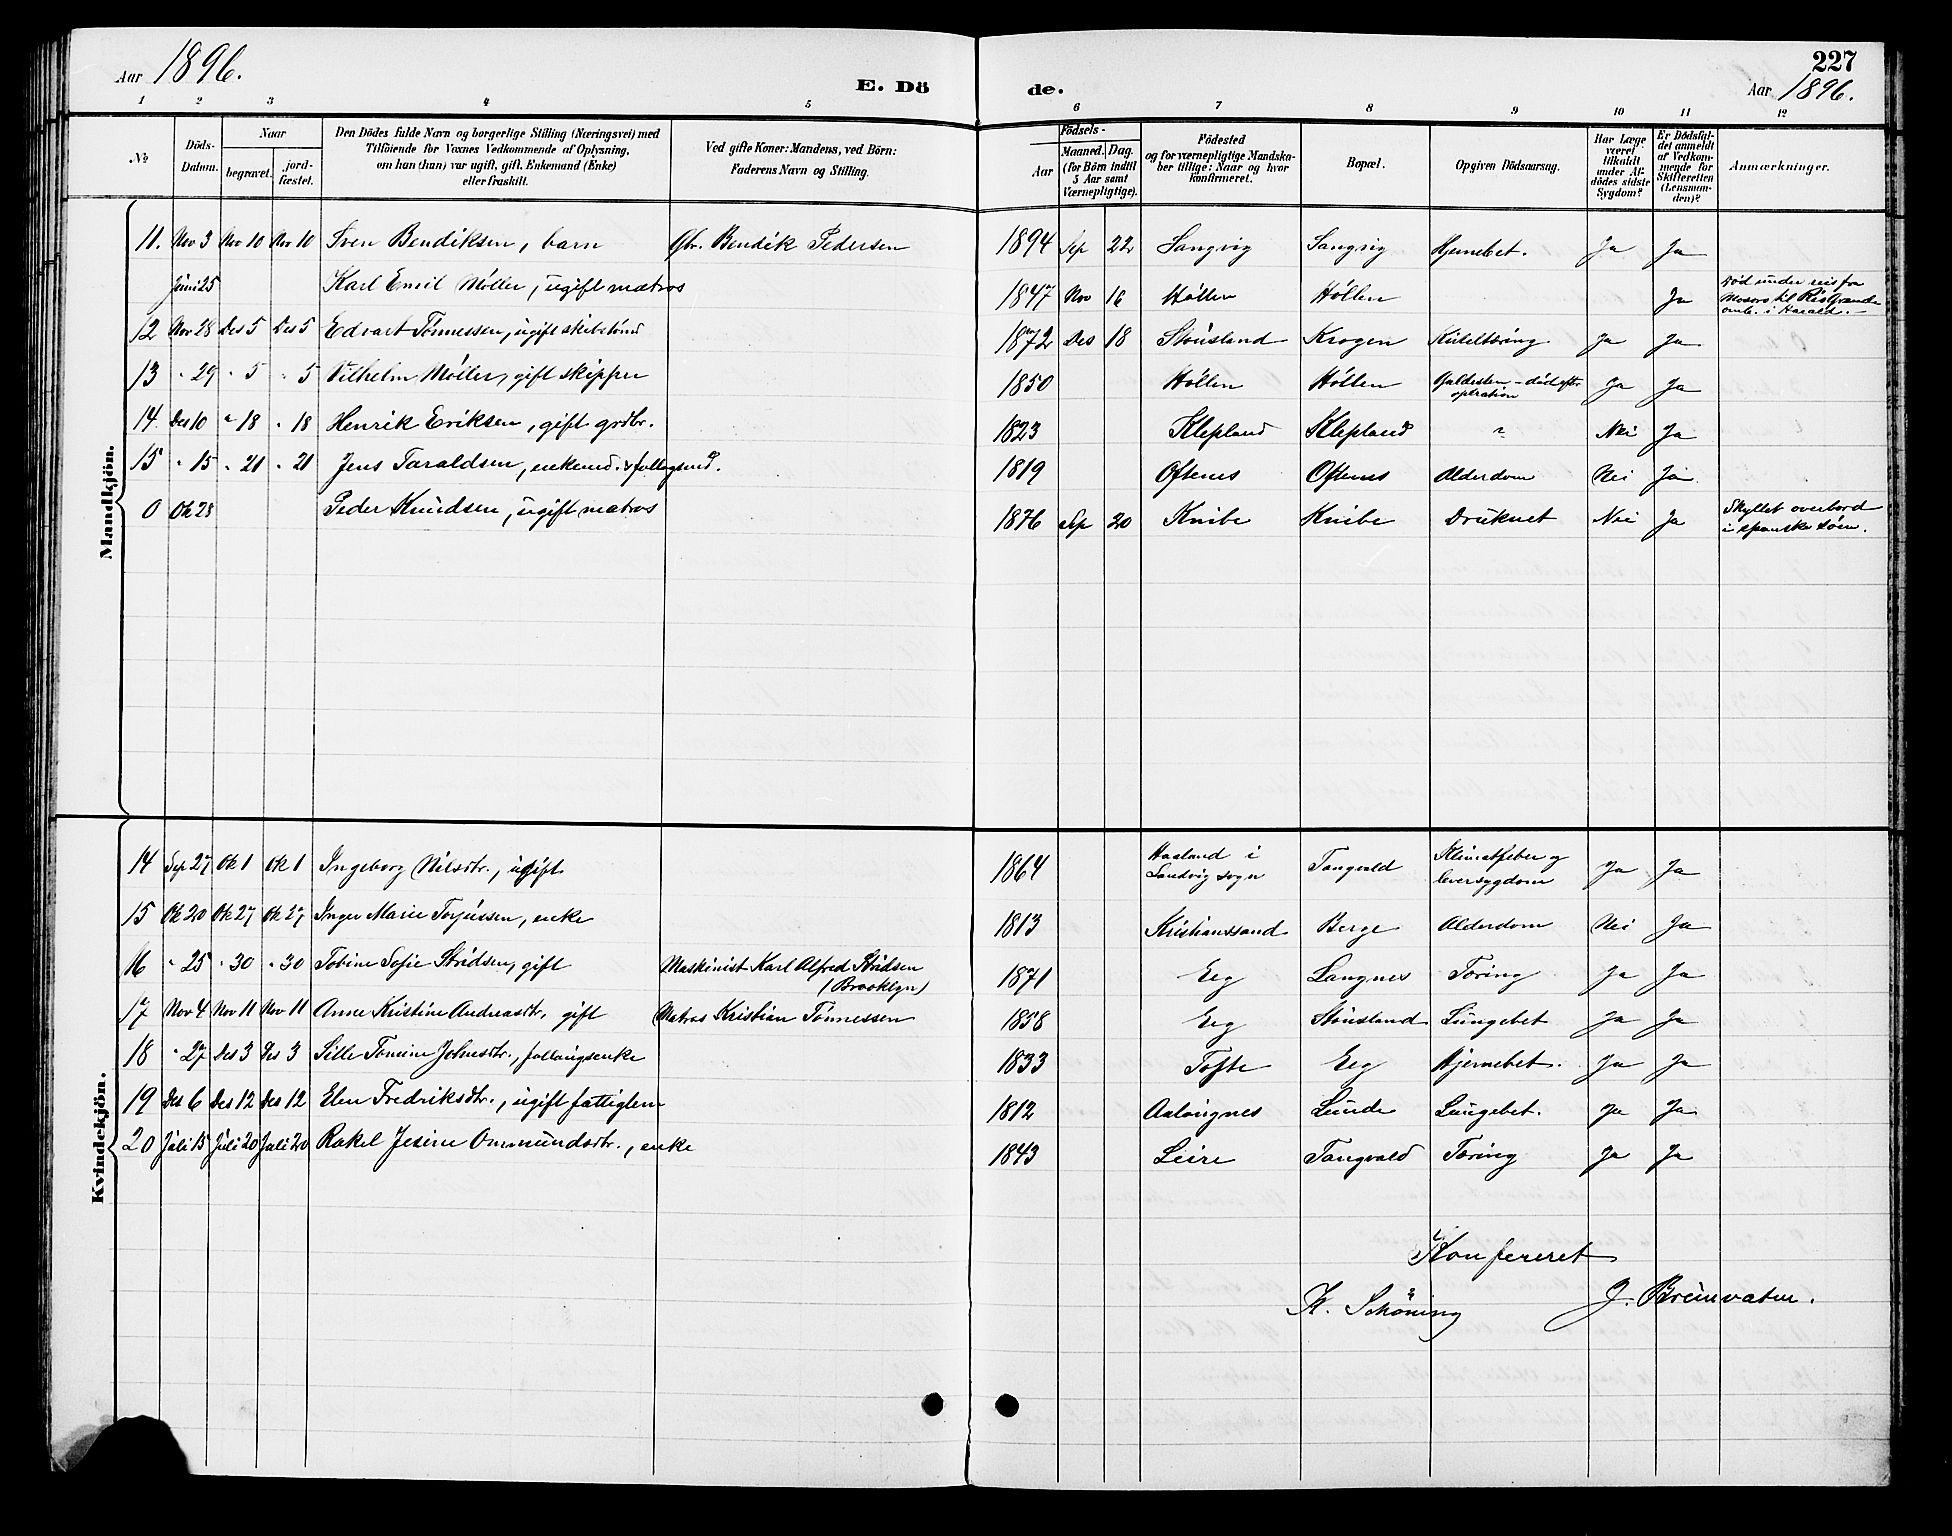 227
Aar 1896.
E. Dö
de.
Aar 1896.
1 2 3 4 5 6 7 8 9 10 11 12
№
Döds-Datum.
Naar
begravet.
jord-fæstet.
Den Dödes fulde Navn og borgerlige Stilling (Næringsvei) med
Tilföiende for Voxnes Vedkommende af Oplysning,
om han (hun) var ugift, gift, Enkemand (Enke)
eller fraskilt.
Ved gifte Koner: Mandens, ved Börn:
Faderens Navn og Stilling.
Födsels-
Aar
Maaned. Dag.
(for Börn indtil
5 Aar samt
Værnepligtige).
Födested
og for værnepligtige Mandska-
ber tillige: Naar og hvor
konfirmeret.
Bopæl.
Opgiven Dödsaarsag.
Har Læge
været
tilkaldt
under Af-
dödes sidste
Sygdom?
Er Dödsfal-
det anmeldt
af Vedkom-
mende for
Skifteretten
(Lensman-
den)?
Anmærkninger.
Mandkjön.
11. Nov 3 Nov 10 Nov 10 Sven Bendiksen, barn Gbr. Bendik Pedersen 1894 Sep 22 Langvig Langvig Hjernebet. Ja Ja
Juni 25 Karl Emil Møller, ugift matros 1847 Nov 16 Høllen Høllen Ja Død under reis fra
Mosoro til Rio Grande
omb. i Harald.
12 Nov 28 Des 5 Des 5 Edvart Tønnessen, ugift skibstømd 1872 Des 18 Stousland Krogen Kirteltæring Ja Ja
13 " 29 " 5 " 5 Vilhelm Møller, gift skipper 1850 Høllen Høllen Galdesten - død eftr.
operation Ja Ja
14. Des 10 " 18 " 18 Henrik Eriksen, gift grdbr. 1823 Klepland Klepland " Nei Ja
15 " 15 " 21 " 21 Jens Taraldsen, enkemd. & follagsmd. 1819 Oftenes Oftenes Alderdom Nei Ja
0 Ok 28 Peder Knudsen, ugift matros 1876 Sep 20 Knibe Knibe Druknet Nei Ja Skyllet overbord
i spanske søen.
Kvindekjön.
14 Sep 27 Ok 1 Ok 1 Ingeborg Nilsdtr., ugift 1864 Haaland i
Landvig sogn Tangvald Klimatfeber og
leversygdom Ja Ja
15 Ok 20 Ok 27 Ok 27 Inger Marie Torjussen, enke 1813 Kristianssand Berge Alderdom Nei Ja
16 " 25 " 30 " 30 Tobine Sofie Stridsen, gift Maskinist Karl Alfred Stridsen
(Brooklyn) 1871 Eeg Langnes Tæring Ja Ja
17 Nov 4 Nov 11 Nov 11 Anne Kristine Andreasdtr, gift Matros Kristian Tønnessen 1858 Eeg Stousland Lungebet Ja Ja
18 " 27 Des 3 Des 3 Sille Tomine Johnsdtr., follaugsenke 1833 Tofte Eeg Hjernebet. Ja Ja
19 Des 6 Des 12 Des 12 Elen Fredriksdtr., ugift fattiglem 1812 Aalougnes Lunde Lungebet. Ja Ja
20 Juli 15 Juli 20 Juli 20 Rakel Jesine Ommundsdtr., enke 1843 Leire Tangvald Tæring Ja Ja
Konfereret
K. Schöning J. Breinvatn.